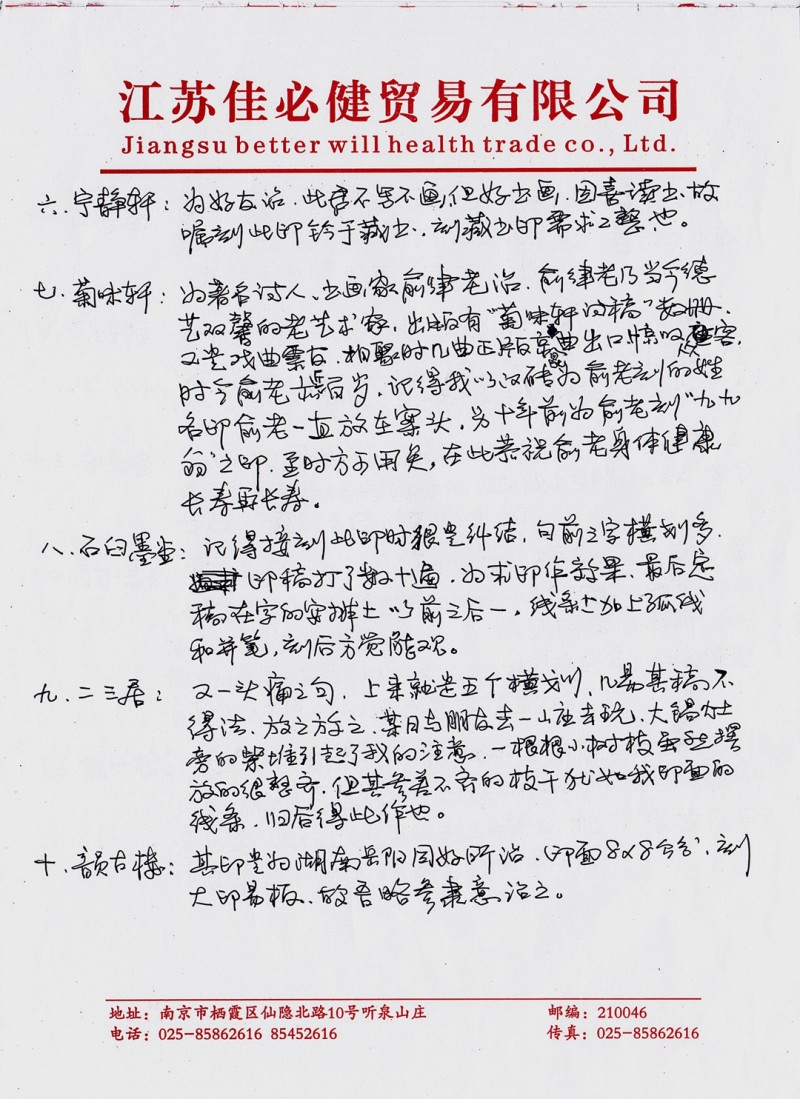 江苏佳必健贸易有限公司
Jiangsu better will health trade co., Ltd.
六.宁静轩：为好友治.此君不写不画,但好书画.因喜读书.故
嘱刻此印钤于藏书.刻藏书印需求工整也。
七.菊味轩：为著名诗人、书画家俞律老治.俞律老乃当今德
艺双馨的老艺术家,出版有“菊味轩诗稿”数册.
又是戏曲票友.相聚时几曲正版京曲出口惊呶众客,
时今俞老近百岁.记得我以汉砖为俞老刻的姓
名印俞老一直放在案头,另十年前为俞老刻“九九
翁”之印.至时方可用矣,在此恭祝俞老身体健康
长寿再长寿。
八.石臼墨堂：记得接刻此印时狠是纠结,句前之字横划多.
印稿打了数十遍.为求印作效果.最后定
稿在字的安排上以前三后一,线条上加上弧线
和并笔,刻后方觉能观。
九.二三居：又一头痛之句.上来就是五个横划,几易其稿不
得法.放之放之.某日与朋友去一山庄去玩,大锅灶
旁的柴堆引起了我的注意.一根根小树枝虽然摆
放的很整齐.但其参差不齐的枝干犹如我印面的
线条.归后得此作也。
十.韵古楼：其印是为湖南岳阳同好所治.印面8×8公分.刻
大印易板.故吾略参隶意治之。
地址：南京市栖霞区仙隐北路10号听泉山庄
邮编：210046
电话：025-85862616 85452616
传真：025-85862616